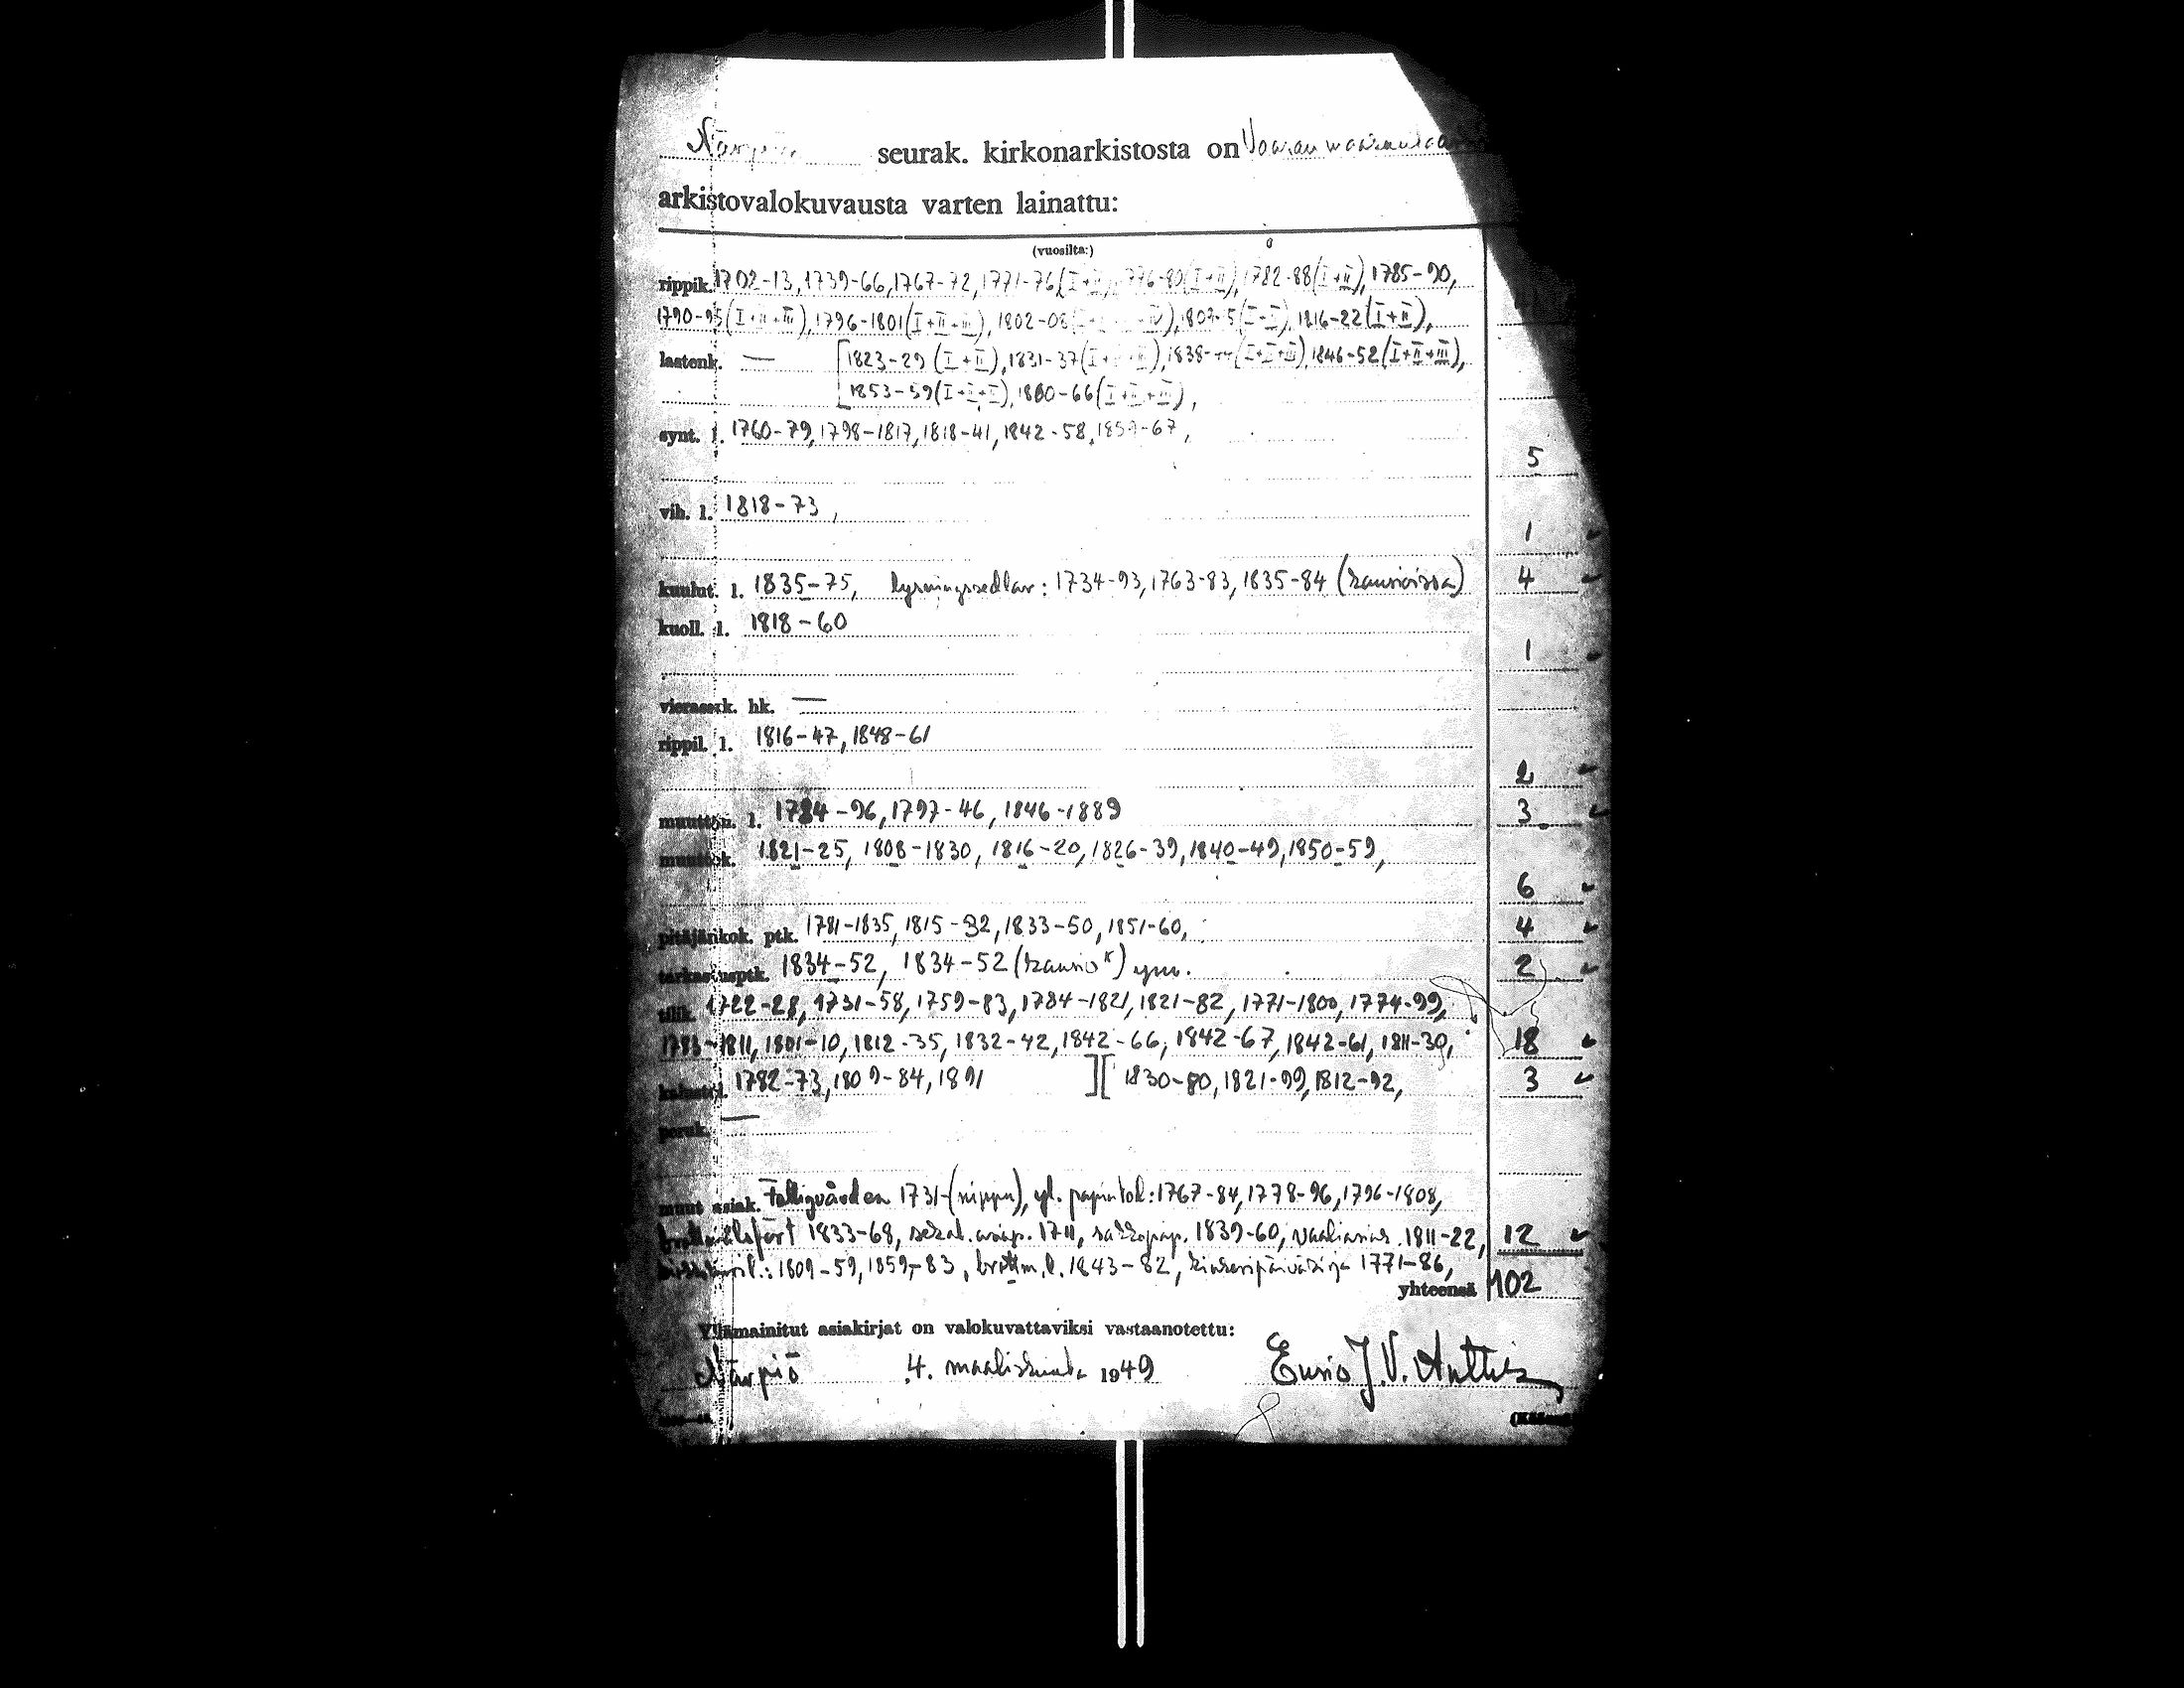 Närpiön seurak. kirkonarkistosta on
arkistovalokuvausta varten lainattu:
(vuosilta:)
rippik. 1702-13, 1739-66, 1767-72, 1771-76 (I+II), 1776-80 (I+II), 1782-88 (I+II), 1785-90,
1790-95 (I+II+III), 1796-1801 (I+II+III), 1802-08 1816-22 (I+II),
lastenk. — [1823-29 (I+II), 1831-37 (I+II+III), 1838-44 (I+II+III), 1846-52 (I+II+III),
1853-59 (I+II+III), 1860-66 (I+II+III),
synt. l. 1760-79, 1798-1817, 1818-41, 1842-58, 1859-67,
5
vih. l. 1818-73,
1
kuulut. l. 1835-75, lysningssedlar: 1734-93, 1763-83, 1835-84 (kansioissa) 4
kuoll. l. 1818-60
1
vierassk. hk. —
rippil. l. 1816-47, 1848-61
2
muutton. l. 1784-96, 1797-46, 1846-1889 3
muuttok. 1821-25, 1808-1830, 1816-20, 1826-39, 1840-49, 1850-59,
6
pitäjänkok. ptk. 1781-1835, 1815-32, 1833-50, 1851-60, 4
tarkastusptk. 1834-52, 1834-52 (kansio) ym. 2
tilik. 1722-28, 1731-58, 1759-83, 1784-1821, 1821-82, 1771-1800, 1774-99,
1783-1811, 1801-10, 1812-35, 1832-42, 1842-66, 1842-67, 1842-61, 1811-30, 18
kalustol. 1782-73, 1809-84, 1891 ][ 1830-80, 1821-99, 1812-92, 3
peruk. —
muut asiak. Fattigvården 1731- (nippu), yl. papintod: 1767-84, 1778-96, 1796-1808,
1833-68, sekal. asiap. 1711, 1839-60, vaaliasiak. 1811-22, 12
1809-59, 1859-83, brottm. l. 1843-82, kinkeripäiväkirja 1771-86,
yhteensä 102
Yllämainitut asiakirjat on valokuvattaviksi vastaanotettu:
Närpiö 4. maaliskuuta 1949 J. V.